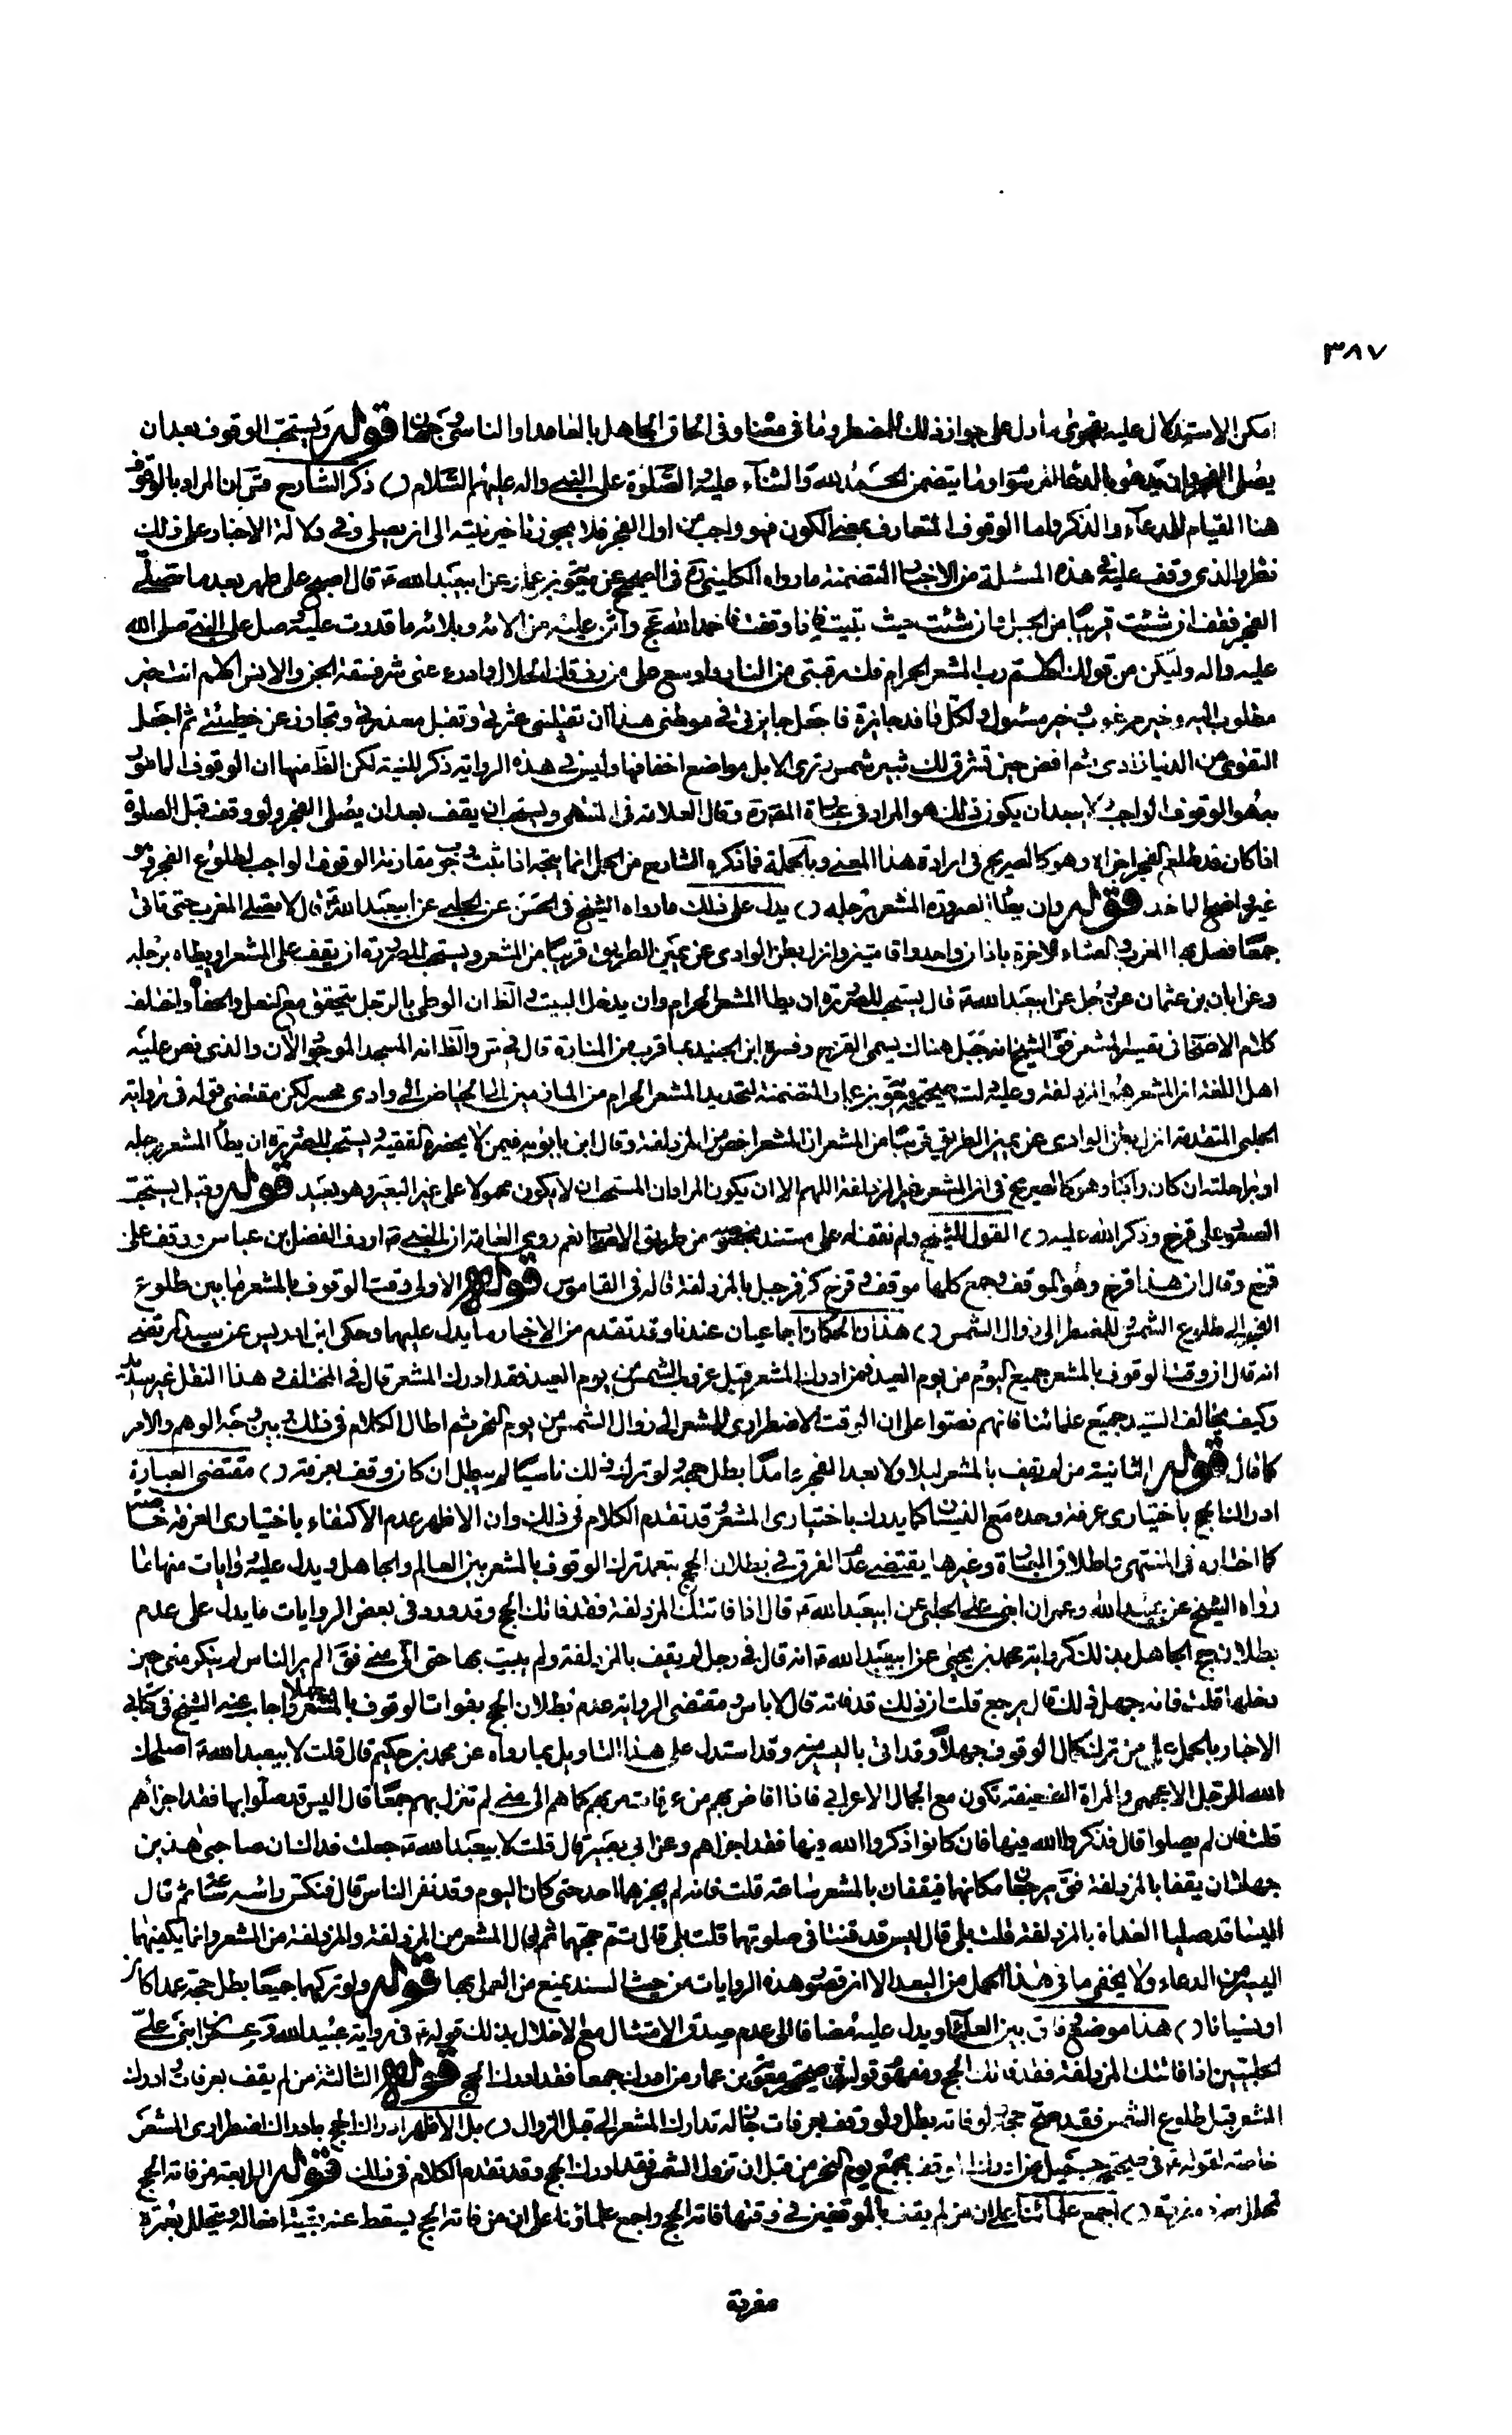 ٣٨٧
امكن الاستدلال عليه بفحوى ما دل على جواز ذلك للمضطر وما في معناه وفي الحاق الجاهل بالعامد او الناسي وجهان قوله ويستحب الوقوف بعد ان
يصلى الفجر وان يدعو بالدعاء المرسوم او ما يتضمن الحمد لله والثناء عليه والصلوة على النبي واله عليهم السلام () ذكر الشارح قدس سره ان المراد بالوقوف
هنا القيام للدعاء والذكر واما الوقوف المتعارف بمعنى الكون فهو واجب من اول الفجر فلا يجوز تاخير نيته الى ان يصلى وفي دلالة الاخبار على ذلك
نظر والذى وقفت عليه في هذه المسئلة من الاخبار المتضمنة ما رواه الكليني ره في الصحيح عن معوية بن عمار عن ابيعبد الله ع قال اصبح على طهر بعد ما تصلى
الفجر فقف ان شئت قريبا من الجبل وان شئت حيث تبيت فاذا وقفت فاحمد الله عج واثن عليه من الائه وبلائه ما قدرت عليه وصل على النبي صلى الله
عليه واله وليكن من قولك اللهم رب المشعر الحرام فك رقبتى من النار واوسع على من رزقك الحلال وادرء عنى شر فسقة الجن والانس اللهم انت خير
مطلوب اليه وخير مدعو وخير مسئول ولكل وافد جائزة فاجعل جايزتى في موطنى هذا ان تقيلنى عثرتى وتقبل معذرتى وتجاوز عن خطيئتى ثم اجعل
التقوى من الدنيا زادى ثم افض حين تشرق لك ثبير وترى الابل مواضع اخفافها وليس في هذه الرواية ذكر للنية لكن الظ منها ان الوقوف المامور
به هو الوقوف الواجب لا يبعد ان يكون ذلك هو المراد في عبارة المقررة وقال العلامة في المنتهى ويستحب ان يقف بعد ان يصلى الفجر ولو وقف قبل الصلوة
اذا كان قد طلع الفجر اجزاه وهو كالصريح في ارادة هذا المعنى وبالجملة فما ذكره الشارح من الحمل انما يتجه اذا ثبت وجوب مقارنة الوقوف الواجب لطلوع الفجر وهو
غير واضح الماخذ قوله وان يطا الصرورة المشعر برجله () يدل على ذلك ما رواه الشيخ في الحسن عن الحلبي عن ابيعبد الله ع قال لا تصلى المغرب حتى تاتى
جمعا فصل بها المغرب والعشاء الاخرة باذان واحد واقامتين وانزل ببطن الوادى عن يمين الطريق قريبا من المشعر ويستحب للصرورة ان يقف على المشعر او يطاه برجله
وعن ابان بن عثمان عن رجل عن ابيعبد الله ع قال يستحب للصرورة ان يطا المشعر الحرام وان يدخل البيت والظ ان الوطى بالرجل يتحقق مع النعل والخف واختلف
كلام الاصحاب في تفسير المشعر فق الشيخ انه جبل هناك يسمى القزح وفسره ابن الجنيد بما قرب من المنارة قال في س والظ انه المسجد الموجود الان والذى نص عليه
اهل اللغة ان المشعر هو المزدلفة وعليه دلت صحيحة معوية بن عمار المتضمنة لتحديد المشعر الحرام من المازمين الى الحياض الى وادى محسر لكن مقتضى قوله في رواية
الحلبى المتقدمة انزل ببطن الوادى عن يمين الطريق قريبا من المشعر ان المشعر اخص من المزدلفة وقال ابن بابويه فيمن لا يحضره الفقيه ويستحب للصرورة ان يطا المشعر برجله
او براحلته ان كان راكبا وهو كالصريح في ان المشعر غير المزدلفة اللهم الا ان يكون المراد ان المستحب ان لا يكون محمولا على غير البعير وهو بعيد قوله وقيل يستحب
الصعود على قزح وذكر الله عليه () القول للشيخ ولم نقف له على مستند بخصوصه من طريق الاصحاب نعم روى العامة ان النبي ص اردف الفضل بن عباس ووقف على
قزح وقال ان هذا قزح وهو الموقف وجمع كلها موقف وقزح كزفر جبل بالمزدلفة قاله في القاموس قوله الاولى وقت الوقوف بالمشعر ما بين طلوع
الفجر الى طلوع الشمس وللمضطر الى زوال الشمس () هذان الحكمان اجماعيان عندنا وقد تقدم من الاخبار ما يدل عليهما وحكى ابن ادريس عن السيد المرتضى
انه قال ان وقت الوقوف بالمشعر جميع اليوم من يوم العيد فمن ادرك المشعر قبل غروب الشمس من يوم العيد فقد ادرك المشعر قال في المختلف وفي هذا النقل غير سديد
وكيف يخالف السيد جميع علمائنا فانهم نصوا على ان الوقت الاضطرارى للمشعر الى زوال الشمس من يوم النحر ثم اطال الكلام في ذلك وبين وجه الوهم والامر
كما قال قوله الثانية من لم يقف بالمشعر ليلا ولا بعد الفجر عامدا بطل حجه ولو ترك ذلك ناسيا لم يبطل ان كان وقف بعرفة () مقتضى العبارة
ادراك الحج باختيارى عرفة وحده مع النسيان كما يدرك باختيارى المشعر وقد تقدم الكلام في ذلك وان الاظهر عدم الاكتفاء باختيارى العرفة خاصة
كما اختاره في المنتهى واطلاق العبارة وغيرها يقتضى عدم الفرق في بطلان الحج بتعمد ترك الوقوف بالمشعر بين العالم والجاهل ويدل عليه روايات منها ما
رواه الشيخ عن عبيد الله وعمران ابنى على الحلبي عن ابيعبد الله ع قال اذا فاتتك المزدلفة فقد فاتك الحج وقد ورد في بعض الروايات ما يدل على عدم
بطلان حج الجاهل بذلك كرواية محمد بن يحيى عن ابيعبد الله ع انه قال في رجل لم يقف بالمزدلفة ولم يبت بها حتى اتى منى فق الم ير الناس لم ينكر منى حين
دخلها قلت فانه جهل ذلك قال يرجع قلت ان ذلك قد فاته قال لا باس ومقتضى الرواية عدم بطلان الحج بفوات الوقوف بالمشعر جهلا واجاب عنه الشيخ في كتابى
الاخبار بالحمل على من ترك كمال الوقوف جهلا وقد اتى باليسير منه وقد استدل على هذا التاويل بما رواه عن محمد بن حكيم قال قلت لابيعبد الله ع اصلحك
الله الرجل الاعجمى والمراة الضعيفة تكون مع الجمال الاعرابي فاذا افاض بهم من عرفات مر بهم كما هم الى منى لم تنزل بهم جمعا قال اليس قد صلوا بها فقد اجزأهم
قلت فان لم يصلوا قال فذكروا الله فيها فان كانوا ذكروا الله فيها فقد اجزاهم وعن ابي بصير قال قلت لابيعبد الله ع جعلت فداك ان صاحبى هذين
جهلا ان يقفا بالمزدلفة فق يرجعان مكانهما فيقفان بالمشعر ساعة قلت فانه لم يخبرهما احد حتى كان اليوم وقد نفر الناس قال فنكس راسه ساعة ثم قال
اليسا قد صليا الغداة بالمزدلفة قلت بلى قال اليس قد قنتا في صلوتهما قلت بلى قال تم حجهما ثم قال المشعر من المزدلفة والمزدلفة من المشعر وانما يكفيهما
اليسير من الدعاء ولا يخفى ما في هذا الحمل من البعد الا ان قصور هذه الروايات من حيث السند يمنع من العمل بها قوله ولو تركهما جميعا بطل حجه عمدا كان
او نسيانا () هذا موضع وفاق بين العلماء ويدل عليه مضافا الى عدم صدق الامتثال مع الاخلال بذلك قوله ع في رواية عبيد الله وعمران ابنى على
الحلبيين اذا فاتتك المزدلفة فقد فاتك الحج ومفهوم قوله في صحيحة معوية بن عمار من ادرك جمعا فقد ادرك الحج قوله الثالثة من لم يقف بعرفات وادرك
المشعر قبل طلوع الشمس فقد صح حجه ولو فاته بطل ولو وقف بعرفات جاز له تدارك المشعر الى قبل الزوال () بل الاظهر ادراك الحج بادراك اضطرارى المشعر
خاصة لقوله ع في صحيحة جميل من ادرك الموقف بجمع يوم النحر من قبل ان تزول الشمس فقد ادرك الحج وقد تقدم الكلام في ذلك قوله الرابعة من فاته الحج
تحلل بعمرة مفردة () اجمع علمائنا على ان من لم يقف بالموقفين في وقتهما فاته الحج واجمع علماؤنا على ان من فاته الحج يسقط عنه بقية افعاله ويتحلل بعمرة
مفردة